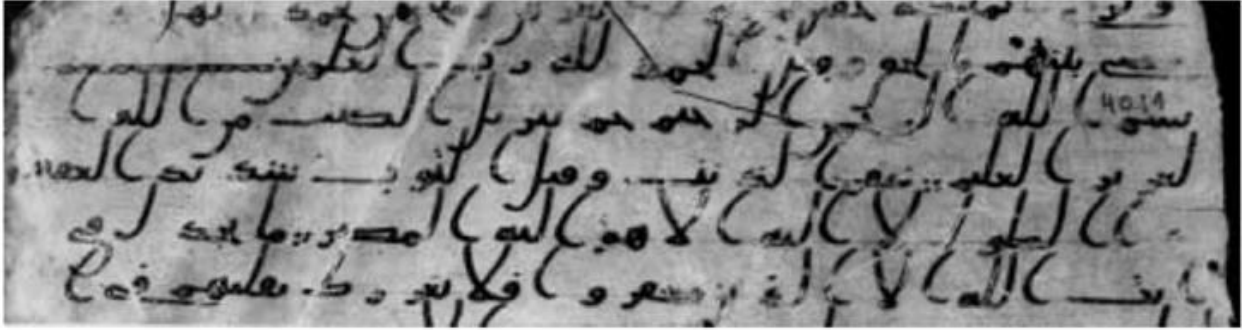 بحمد ربهم
وقضى بينهم بالحق وقيل الحمد لله رب العلمين
بسم الله الرحمن الرحيم حم تنزيل الكتب من الله
العزيز العليم غفر الذنب وقبل التوب شديد العقا
ب ذي الطول لا اله الا هو اليه المصير ما يجدل في
ايت الله الا الذين كفروا فلا يغررك تقلبهم في ا